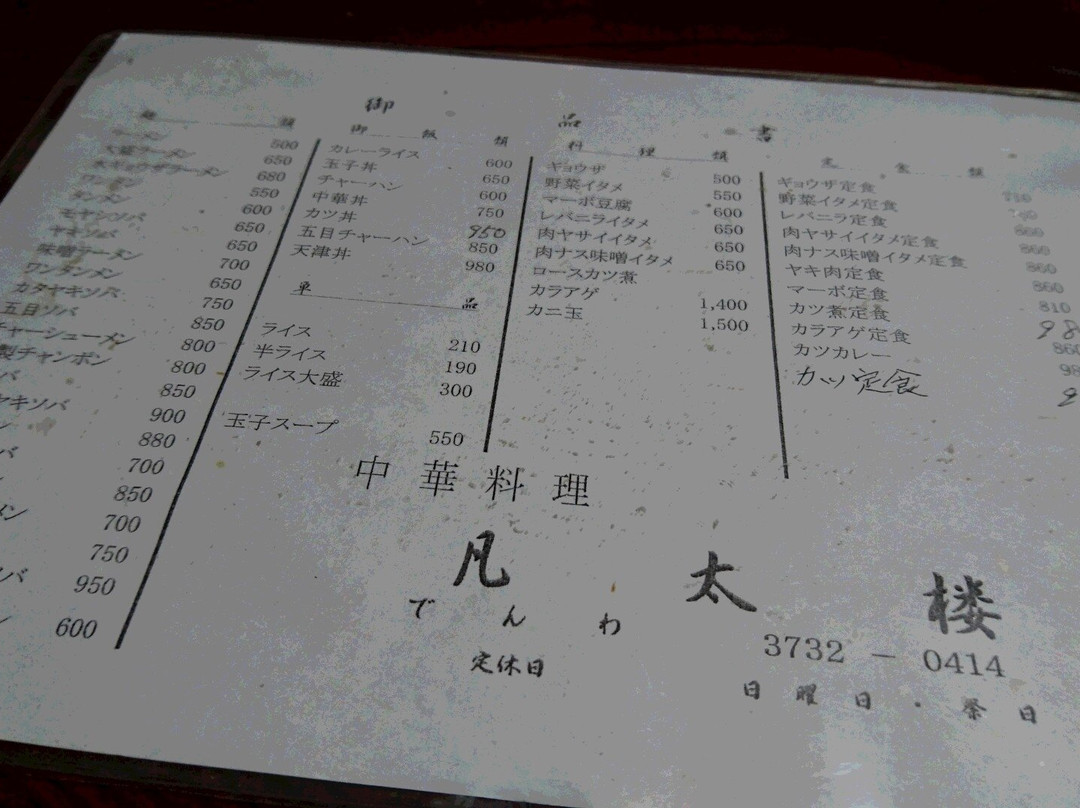 御 品 書
麺 類
ラーメン 500
大盛ラーメン 650
水ギョウザラーメン 680
ワンタン 550
タンメン 600
モヤシソバ 650
ヤキソバ 650
味噌ラーメン 700
ワンタンメン 650
カタヤキソバ 750
五目ソバ 850
チャーシューメン 800
製チャンポン 800
バ 850
ヤキソバ 900
ン 880
バ 700
850
メン 700
750
バ 950
ン 600
御 飯 類
カレーライス 600
玉子丼 650
チャーハン 600
中華丼 750
カツ丼 950
五目チャーハン 850
天津丼 980
単 品
ライス 210
半ライス 190
ライス大盛 300
玉子スープ 550
料 理 類
ギョウザ 500
野菜イタメ 550
マーボ豆腐 600
レバニライタメ 650
肉ヤサイイタメ 650
肉ナス味噌イタメ 650
ロースカツ煮
カラアゲ 1,400
カニ玉 1,500
定 食 類
ギョウザ定食
野菜イタメ定食
レバニラ定食 860
肉ヤサイイタメ定食 860
肉ナス味噌イタメ定食 860
ヤキ肉定食 860
マーボ定食 810
カツ煮定食 98
カラアゲ定食 860
カツカレー 98
カツ定食
中華料理
凡太楼
でんわ 3732-0414
定休日 日曜日・祭日